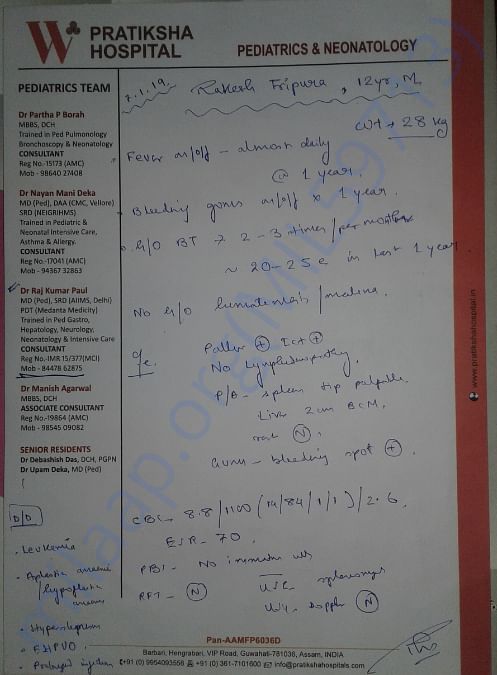 PRATIKSHA
HOSPITAL
PEDIATRICS & NEONATOLOGY
PEDIATRICS TEAM
Dr Partha P Borah
MBBS, DCH
Trained in Ped Pulmonology
Bronchoscopy & Neonatology
CONSULTANT
Reg No.-15173 (AMC)
Mob - 98640 27408
Dr Nayan Mani Deka
MD (Ped), DAA (CMC, Vellore)
SRD (NEIGRIHMS)
Trained in Pediatric &
Neonatal Intensive Care,
Asthma & Allergy.
CONSULTANT
Reg No.-17041 (AMC)
Mob - 94367 32863
Dr Raj Kumar Paul
MD (Ped), SRD (AIIMS, Delhi)
PDT (Medanta Medicity)
Trained in Ped Gastro,
Hepatology, Neurology,
Neonatology & Intensive Care
CONSULTANT
Reg No.-IMR 15/377(MCI)
Mob - 84478 62875
Dr Manish Agarwal
MBBS, DCH
ASSOCIATE CONSULTANT
Reg No.-19864 (AMC)
Mob - 98545 09082
SENIOR RESIDENTS
Dr Debashish Das, DCH, PGPN
Dr Upam Deka, MD (Ped)
D/D
Leukemia
Aplastic anaemia
/hypoplastic
anaemia
Hypersplenism
EHPVO
7.1.19. Rakesh Tripura, 12yr, M
Wt → 28 kg
Fever on/off - almost daily
@ 1 year.
Bleeding gums on/off x 1 year.
h/o BT → 2-3 times/per month
~ 20-25 in last 1 year
No h/o hematemesis/malena.
O/e. Pallor + Ict +
No lymphadenopathy.
P/A - spleen tip palpable.
Liver 2cm BCM.
N
Gums - bleeding spot +
CBC - 8.8/1100 (14/84/1/1)/2.6
ESR - 70.
PBS - No immature cells
RFT - N
USG splenomegaly
Doppler N
Pan-AAMFP6036D
Barbari, Hengrabari, VIP Road, Guwahati-781036, Assam, INDIA
+91 (0) 9954093556 +91 (0) 361-7101600 info@pratikshahospitals.com
www.pratikshahospital.in